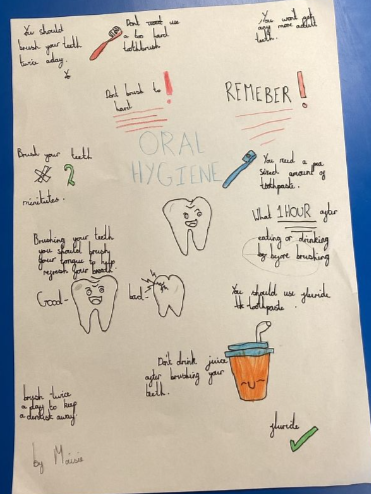 You should
brush your teeth
twice a day.
Dont use
a too hard
toothbrush
You wont get
any more adult
teeth.
Dont brush to
hard !
REMEBER !
ORAL
HYGIENE
Brush your teeth
2
minitutes.
You need a pea
sized amount of
toothpaste.
What 1 HOUR after
eating or drinking
before brushing
Brushing your teeth
you should brush
your tongue to help
refresh your breath.
Good-
bad-
You should use fluride
toothpaste.
Don't drink juice
after brushing your
teeth.
brush twice
a day to keep
a dentist away
fluride
by Maisie